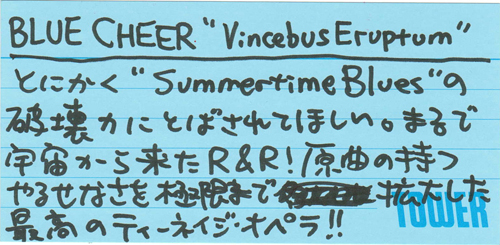 BLUE CHEER "Vincebus Eruptum"
とにかく"Summertime Blues"の
破壊力にとばされてほしい。まるで
宇宙から来たR&R!原曲の持つ
やるせなさを極限まで拡大した
最高のティーネイジ・オペラ!!
TOWER